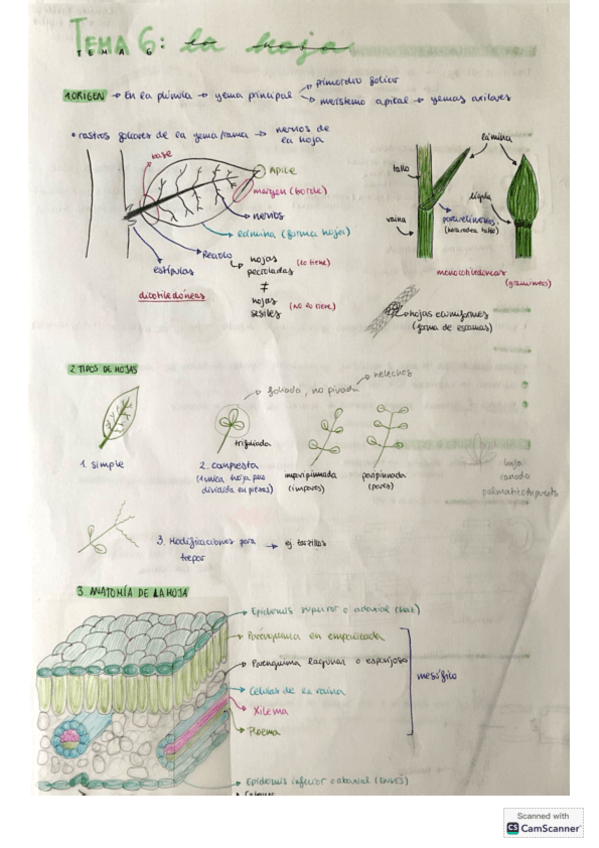 TEMA 6: la hoja
TEMA 6
1 ORIGEN → En la plúmula → yema principal → primordio foliar
→ meristemo apical → yemas axilares
• rastros foliares de la yema/rama → nervios de
la hoja
base
Ápice
margen (borde)
nervios
lámina (forma hoja)
Peciolo
hojas
pecioladas
(lo tiene)
≠
hojas
sésiles
(no lo tiene)
estípulas
dicotiledóneas
lámina
tallo
lígula
vaina
(para rodear tallo)
monocotiledóneas
(gramíneas)
hojas escuamiformes
(forma de escamas)
2 TIPOS DE HOJAS
helechos
trifoliada
1. simple
2. compuesta
(1 única hoja pero
dividida en piezas)
imparipinnada
(impares)
paripinnada
(pares)
3. Modificaciones para → ej zarcillos
trepar
3. ANATOMÍA DE LA HOJA
Epidermis superior o adaxial (haz)
Parénquima en empalizada
Parénquima lagunar o esponjoso
mesófilo
Células de la vaina
Xilema
Floema
Epidermis inferior o abaxial (envés)
Scanned with
CS CamScanner